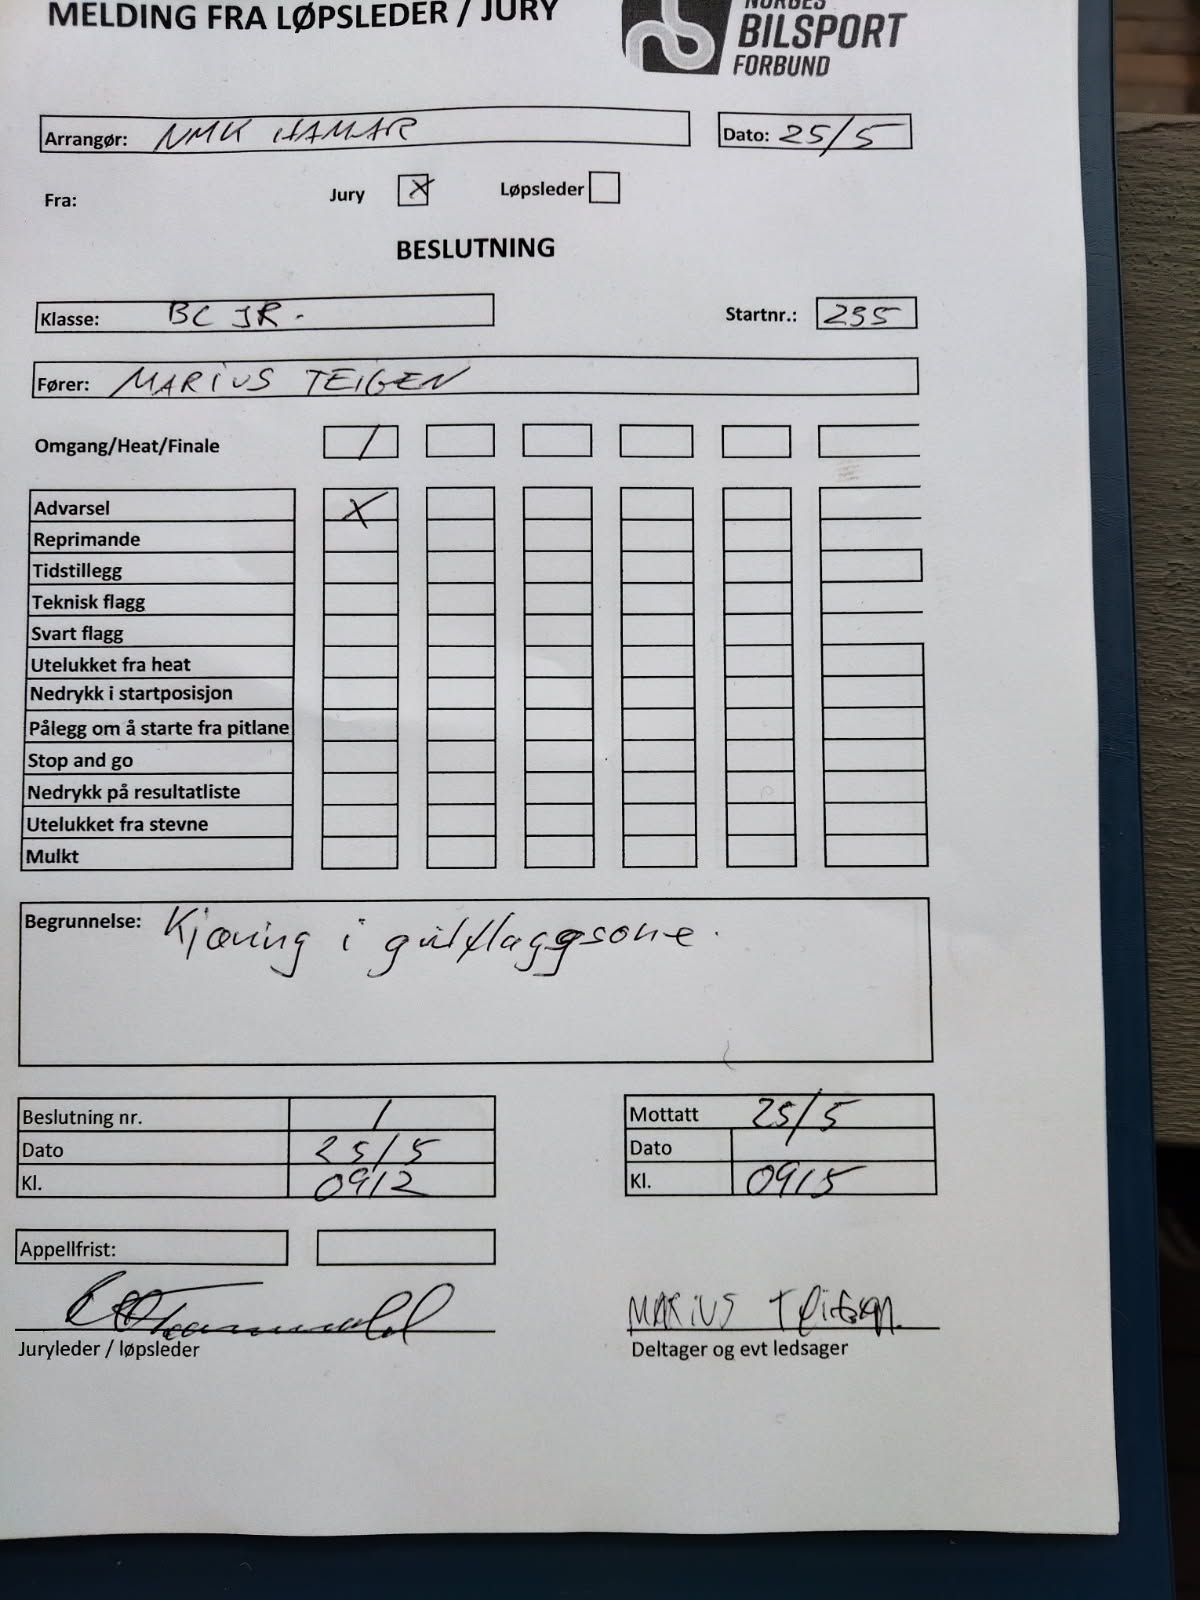 MELDING FRA LØPSLEDER / JURY
NORGES
BILSPORT
FORBUND
Arrangør: NMK HAMAR
Dato: 25/5
Fra:
Jury X
Løpsleder
BESLUTNING
Klasse: BC JR.
Startnr.: 235
Fører: MARIUS TEIGEN
Omgang/Heat/Finale 1
Advarsel X
Reprimande
Tidstillegg
Teknisk flagg
Svart flagg
Utelukket fra heat
Nedrykk i startposisjon
Pålegg om å starte fra pitlane
Stop and go
Nedrykk på resultatliste
Utelukket fra stevne
Mulkt
Begrunnelse: Kjøring i gulflaggsone.
Beslutning nr. 1
Dato 25/5
Kl. 0912
Mottatt 25/5
Dato
Kl. 0915
Appellfrist:
Juryleder / løpsleder
MARIUS TEIGEN
Deltager og evt ledsager